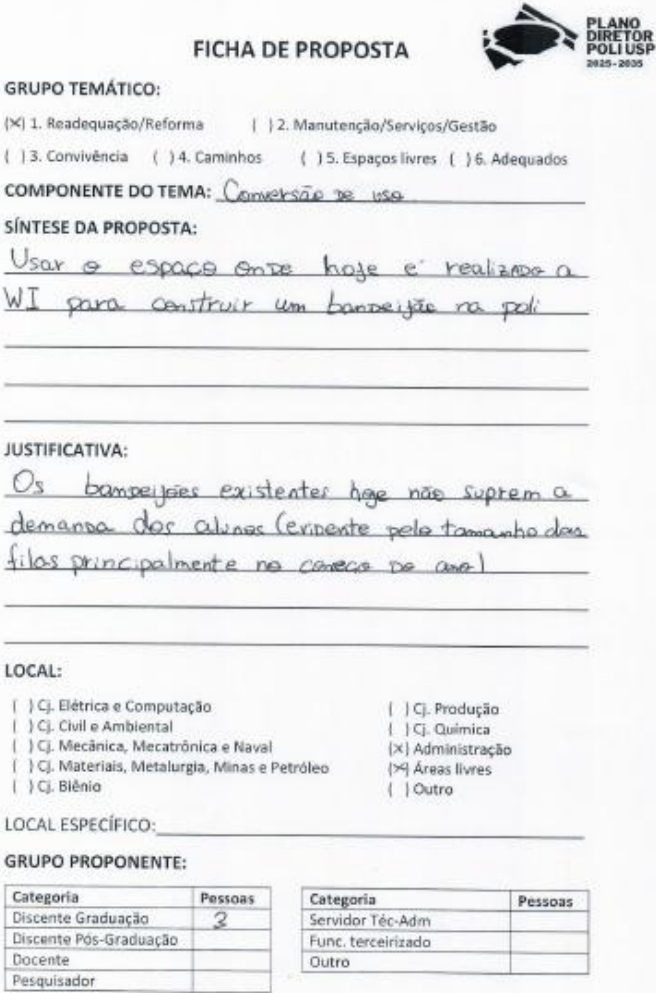 PLANO
DIRETOR
POLI USP
2025-2035
FICHA DE PROPOSTA
GRUPO TEMÁTICO:
(X) 1. Readequação/Reforma ( ) 2. Manutenção/Serviços/Gestão
( ) 3. Convivência ( ) 4. Caminhos ( ) 5. Espaços livres ( ) 6. Adequados
COMPONENTE DO TEMA: Conversão de uso
SÍNTESE DA PROPOSTA:
Usar o espaço onde hoje é realizada a
WI para construir um bandeijão na poli
JUSTIFICATIVA:
Os bandeijões existentes hoje não suprem a
demanda dos alunos (evidente pelo tamanho das
filas principalmente no começo do ano)
LOCAL:
( ) Cj. Elétrica e Computação
( ) Cj. Civil e Ambiental
( ) Cj. Mecânica, Mecatrônica e Naval
( ) Cj. Materiais, Metalurgia, Minas e Petróleo
( ) Cj. Biênio
( ) Cj. Produção
( ) Cj. Química
(X) Administração
(X) Áreas livres
( ) Outro
LOCAL ESPECÍFICO:
GRUPO PROPONENTE:
Categoria Pessoas
Discente Graduação 3
Discente Pós-Graduação
Docente
Pesquisador
Categoria Pessoas
Servidor Téc-Adm
Func. terceirizado
Outro